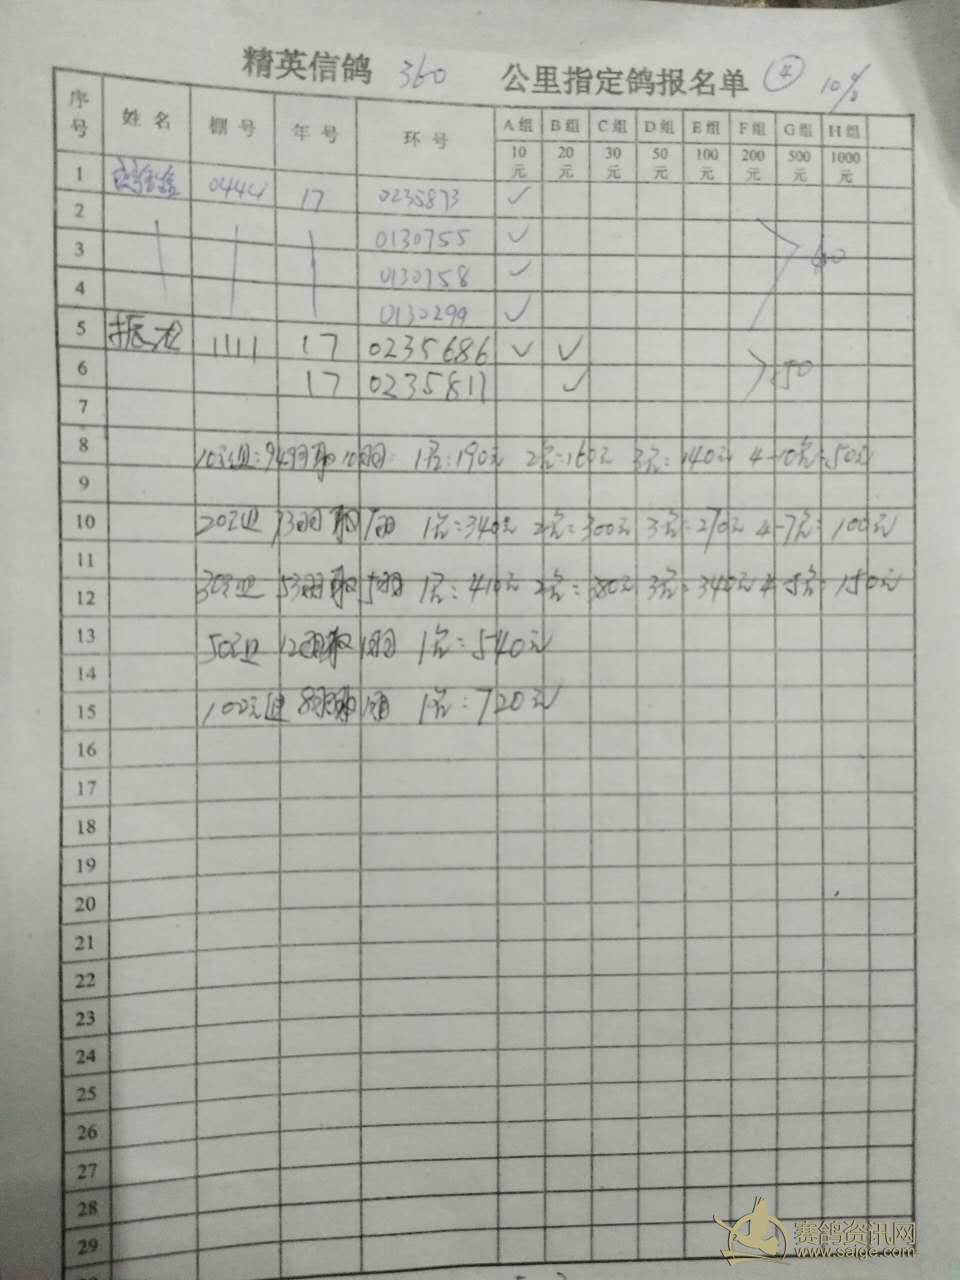 精英信鸽 360 公里指定鸽报名单 ④ 10%
序号 姓名 棚号 年号 环号 A组 B组 C组 D组 E组 F组 G组 H组
10元 20元 30元 50元 100元 200元 500元 1000元
1 0444 17 0235873 ✓
2 0130755 ✓
3 0130758 ✓
4 0130299 ✓
40
5 振龙 1111 17 0235686 ✓ ✓
6 17 0235811 ✓
50
7
8 10元组:94羽取10羽: 1名:190元 2名:160元 3名:140元 4-10名:50元
9
10 20元组 73羽取7羽 1名:340元 2名:300元 3名:270元 4-7名:100元
11
12 30元组 53羽取5羽 1名:410元 2名:380元 3名:340元 4-5名:150元
13 50元组 12羽取1羽 1名:540元
14
15 100元组 8羽取1羽 1名:720元
16
17
18
19
20
21
22
23
24
25
26
27
28
29
赛鸽资讯网
www.saige.com